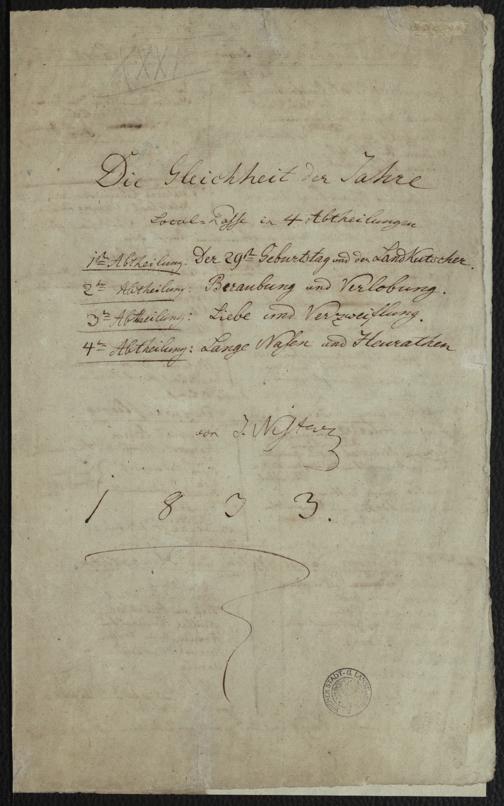 XXXI
Die Gleichheit der Jahre
Local-Posse in 4 Abtheilungen
1te Abtheilung: Der 29te Geburtstag und der Landkutscher.
2te Abtheilung: Beraubung und Verlobung.
3te Abtheilung: Liebe und Verzweiflung.
4te Abtheilung: Lange Nasen und Heurathen
von J. Nestroy
1 8 3 3.
STADT-U. LAND